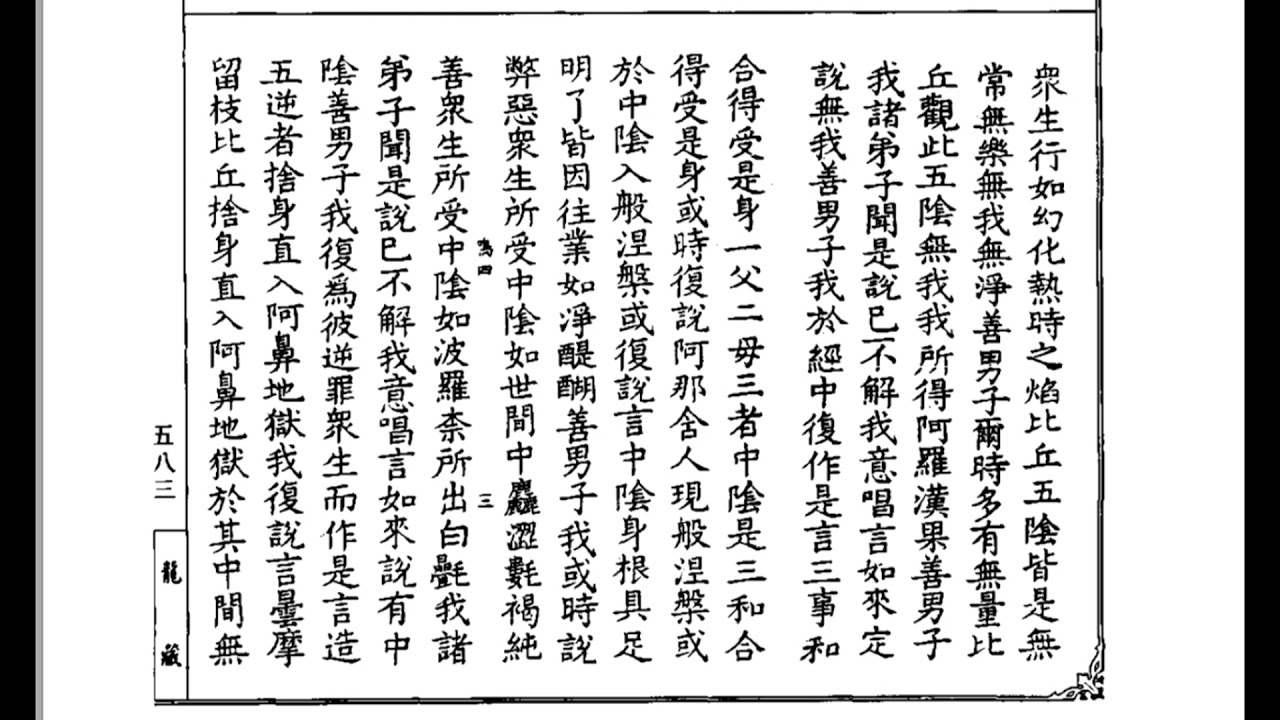 眾生行如幻化熱時之焰比丘五陰皆是無
常無樂無我無淨善男子爾時多有無量比
丘觀此五陰無我我所得阿羅漢果善男子
我諸弟子聞是說已不解我意唱言如來定
說無我善男子我於經中復作是言三事和
合得受是身一父二母三者中陰是三和合
得受是身或時復說阿那含人現般涅槃或
於中陰入般涅槃或復說言中陰身根具足
明了皆因往業如淨醍醐善男子我或時說
弊惡眾生所受中陰如世間中麤澀氀褐純
鳴四 三
善眾生所受中陰如波羅柰所出白㲲我諸
弟子聞是說已不解我意唱言如來說有中
陰善男子我復為彼逆罪眾生而作是言造
五逆者捨身直入阿鼻地獄我復說言曇摩
留枝比丘捨身直入阿鼻地獄於其中間無
五八三
龍藏